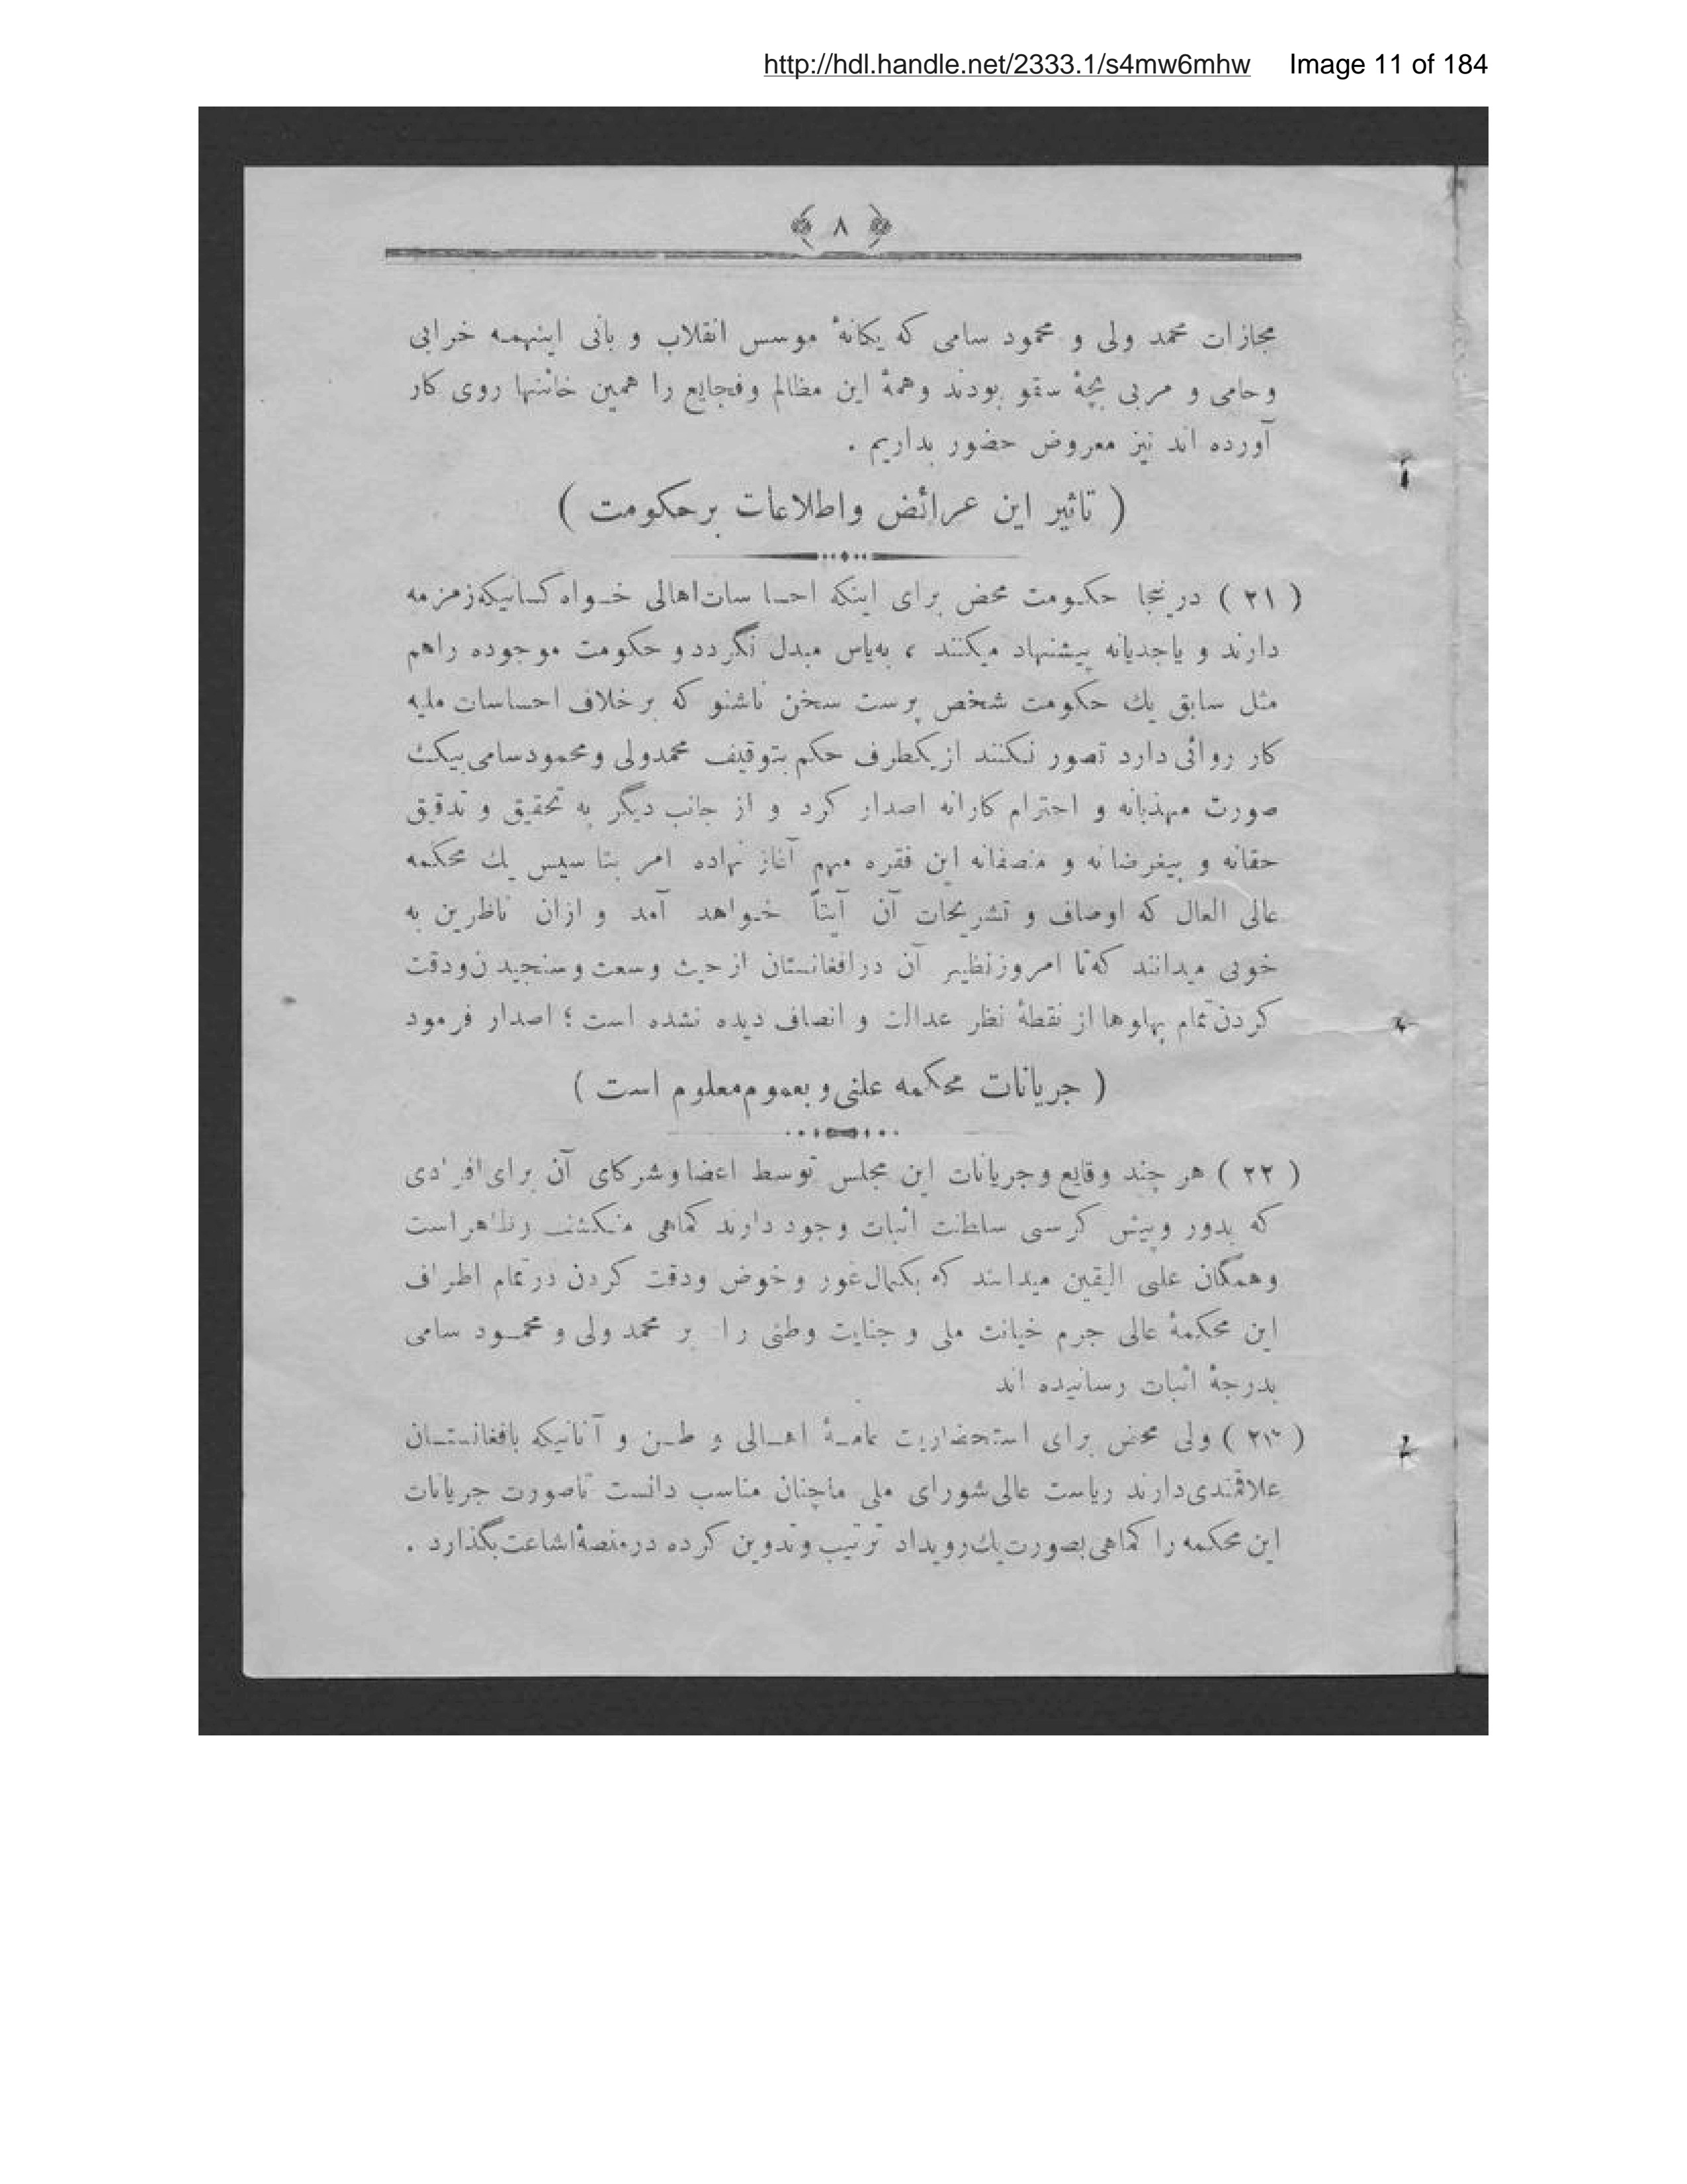 http://hdl.handle.net/2333.1/s4mw6mhw Image 11 of 184
﴿ ٨ ﴾
مجازات محمد ولی و محمود سامی که یکانهٔ موسس انقلاب و بانی اینهمه خرابی
و حامی و مربی بچهٔ سقو بودند وهمهٔ این مظالم وفجایع را همین خائنها روی کار
آورده اند نیز معروض حضور بداریم .
( تاثیر این عرائض واطلاعات برحکومت )
( ۲۱ ) درینجا حکومت محض برای اینکه احسا سات اهالی خواه کسانیکه زمزمه
دارند و یاجدیانه پیشنهاد میکنند ، به یاس مبدل نگردد و حکومت موجوده راهم
مثل سابق یك حکومت شخص پرست سخن ناشنو که برخلاف احساسات ملیه
کار روائی دارد تصور نکنند از یکطرف حکم بتوقیف محمدولی ومحمودسامی بیك
صورت مهذبانه و احترام کارانه اصدار کرد و از جانب دیگر به تحقیق و تدقیق
حقانه و بیغرضانه و منصفانه این فقره مهم آغاز نهاده امر بتا سیس یك محکمه
عالی العال که اوصاف و تشریحات آن آیتاً خواهد آمد و ازان ناظرین به
خوبی میدانند که تا امروز نظیر آن درافغانستان از حیث وسعت وسنجیدن ودقت
کردن تمام پهلوها از نقطهٔ نظر عدالت و انصاف دیده نشده است ؛ اصدار فرمود
( جریانات محکمه علنی و بعموم معلوم است )
( ۲۲ ) هر چند وقایع وجریانات این مجلس توسط اعضا وشرکای آن برای افرادی
که بدور وپیش کرسی سلطنت اثبات وجود دارند کماهی منکشف وظاهر است
وهمگان علی الیقین میدانند که بکمال غور و خوض ودقت کردن در تمام اطراف
این محکمهٔ عالی جرم خیانت ملی و جنایت وطنی را بر محمد ولی و محمود سامی
بدرجهٔ اثبات رسانیده اند
( ۲۳ ) ولی محض برای استحضاریت عامهٔ اهالی و طن و آنانیکه بافغانستان
علاقمندی دارند ریاست عالی شورای ملی ماچنان مناسب دانست تاصورت جریانات
این محکمه را کماهی بصورت یك رویداد ترتیب وتدوین کرده در منصهٔ اشاعت بگذارد .